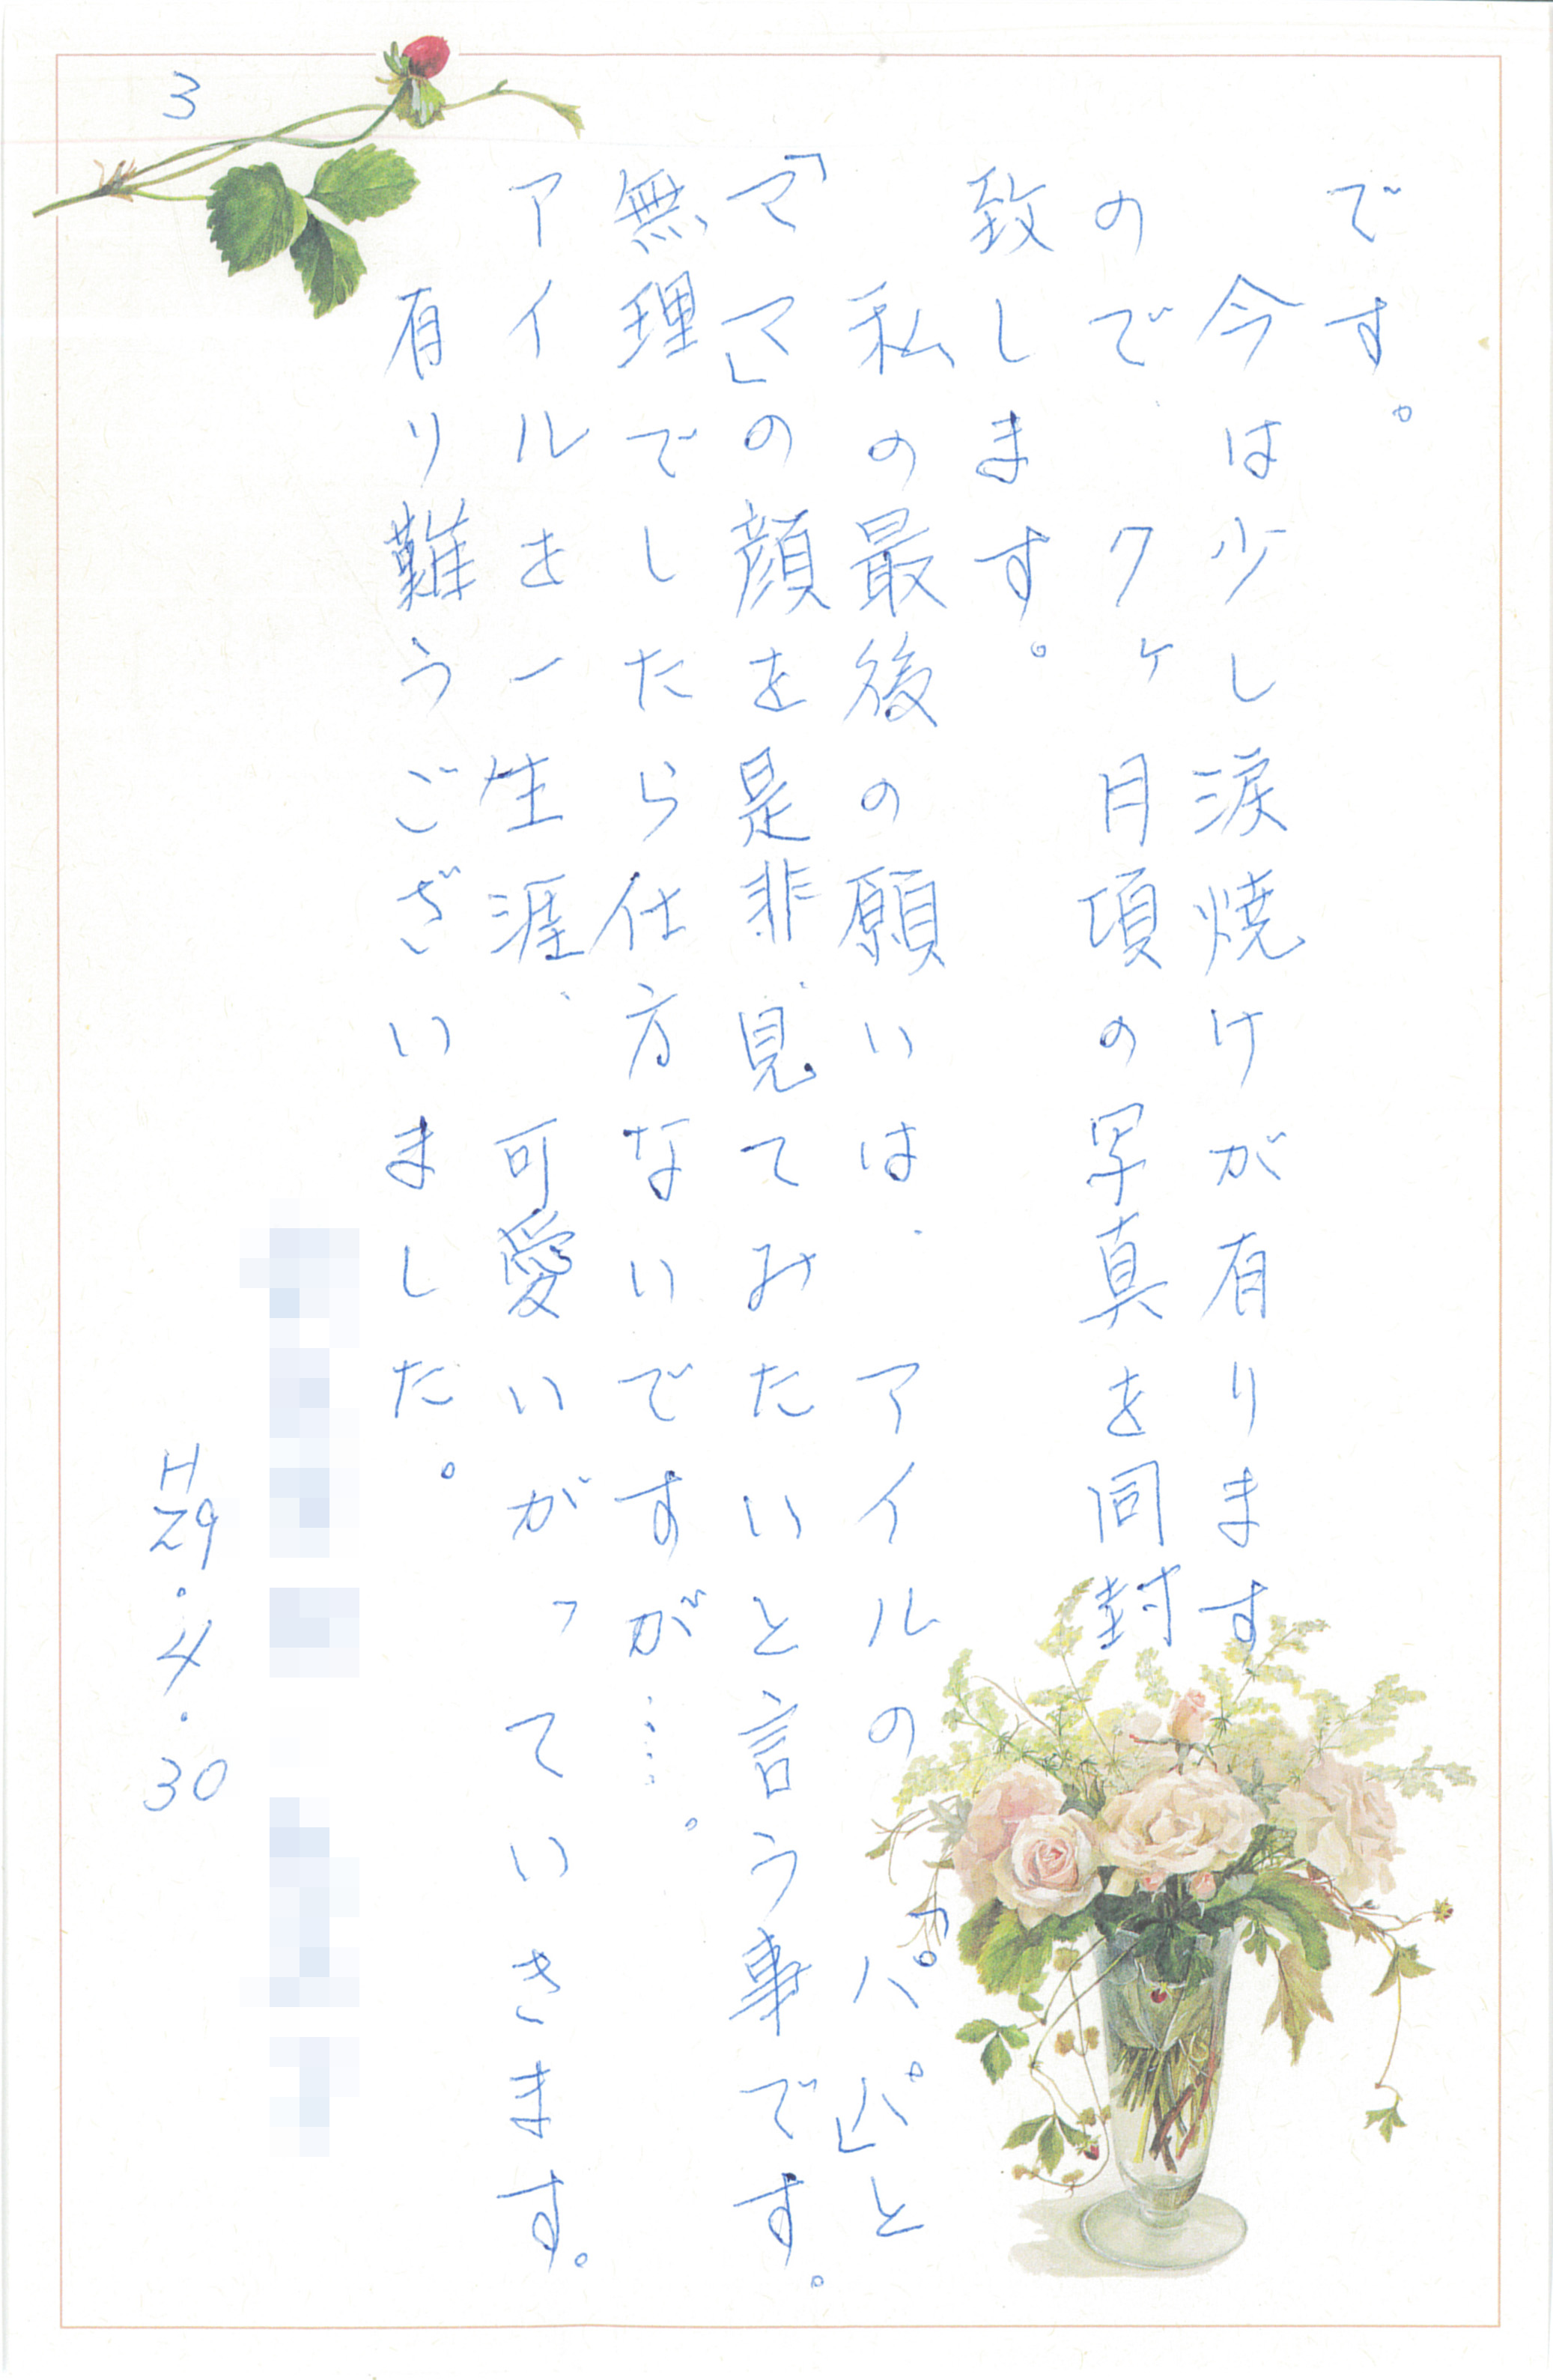 3
です。
今は少し涙焼けが有ります
ので、7ヶ月頃の写真を同封
致します。
私の最後の願いは、アイルの「パパ」と
「ママ」の顔を是非、見てみたいと言う事です。
無理でしたら仕方ないですが……。
アイルを一生涯、可愛いがっていきます。
有り難うございました。
H29.4.30